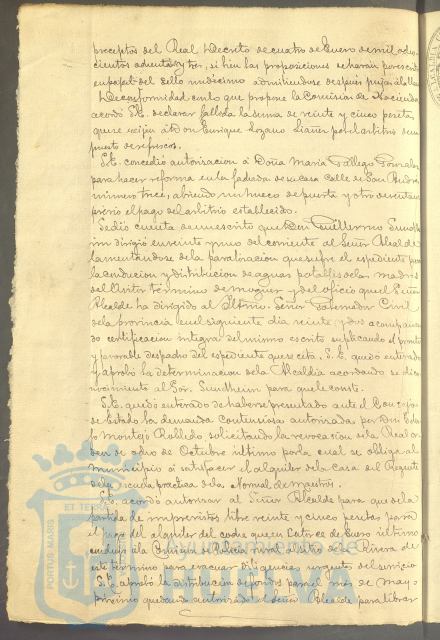 preceptos del Real Decreto de cuatro de Enero de mil ocho
cientos ochenta y tres, si bien las proposiciones se harán por escrito
en papel del sello undécimo admitiéndose después pujas á la llana
De conformidad con lo que propone la Comisión de Hacienda
acordó S.E. declarar fallida la suma de veinte y cinco pesetas
que se exijen á Don Enrique Lozano Liañez por el arbitrio de un
puesto de refrescos.
S.E. concedió autorización á Doña María Gallego González
para hacer reforma en la fachada de su casa Calle de San Andrés
número trece, abriendo un hueco de puerta y otro de ventana
previo el pago del arbitrio establecido.
Se dió cuenta de un escrito que Don Guillermo Sundh
eim dirigió en veinte y uno del corriente al Señor Alcalde
lamentándose de la paralización que sufre el espediente para
la conducion y distribución de aguas potables de la madre
del Avitor término de Moguer y del oficio que el Señor
Alcalde ha dirigido al Iltmo. Señor Gobernador Civil
de la provincia en el siguiente día veinte y dos acompañan
do certificación íntegra del mismo escrito suplicando el pronto
y favorable despacho del espediente que se cita. S.E. quedó enterado
y aprobó la determinación de la Alcaldía acordando se dé co
nocimiento al Sor. Sundheim para que le conste.
S.E. quedó enterado de haberse presentado ante el Consejo
de Estado la demanda contenciosa autorizada por Don
Montejo Robledo, solicitando la revocación de la Real or
den de ocho de Octubre último por la cual se obliga al
municipio á satisfacer el alquiler de la casa del Regente
de la escuela práctica de la Normal de maestros.
S.E. acordó autorizar al Señor Alcalde para que de la
partida de imprevistos libre veinte y cinco pesetas para
el pago del alquiler del coche que en catorce de Enero último
condujo á la Comisión de Policía rural al sitio de la Rivera de
este término para evacuar diligencias urgentes del servicio
S.E. aprobó la distribución de fondos para el mes de Mayo
próximo quedando autorizado el Señor Alcalde para librar
ET TERRÆ
PORTUS MARIS
Ayuntamiento de
HUELVA